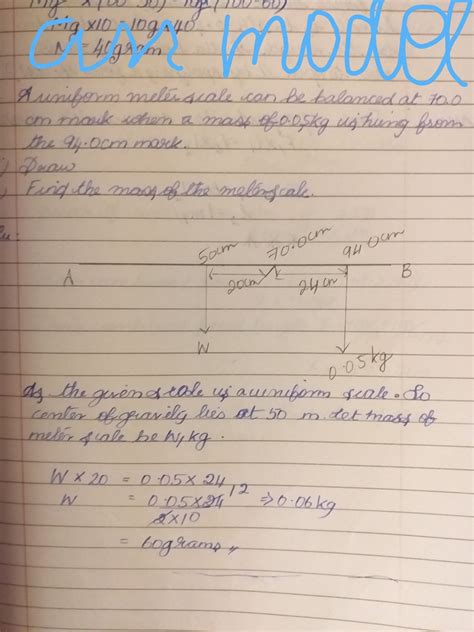 Mg × (100-50)
Mg ×10 = 10g×40
M = 40gram
am model
A uniform meter scale can be balanced at 70.0
cm mark when a mass of 0.05kg is hung from
the 94.0cm mark.
) Draw
) Find the mass of the meterscale.
50cm 70.0cm 94.0cm
A 20cm 24cm B
W 0.05kg
As the given scale is a uniform scale. So
center of gravity lies at 50 m. let mass of
meter scale be W, kg.
W × 20 = 0.05 × 24
W = 0.05×24 12 ⇒ 0.06kg
2×10
= 60grams,,